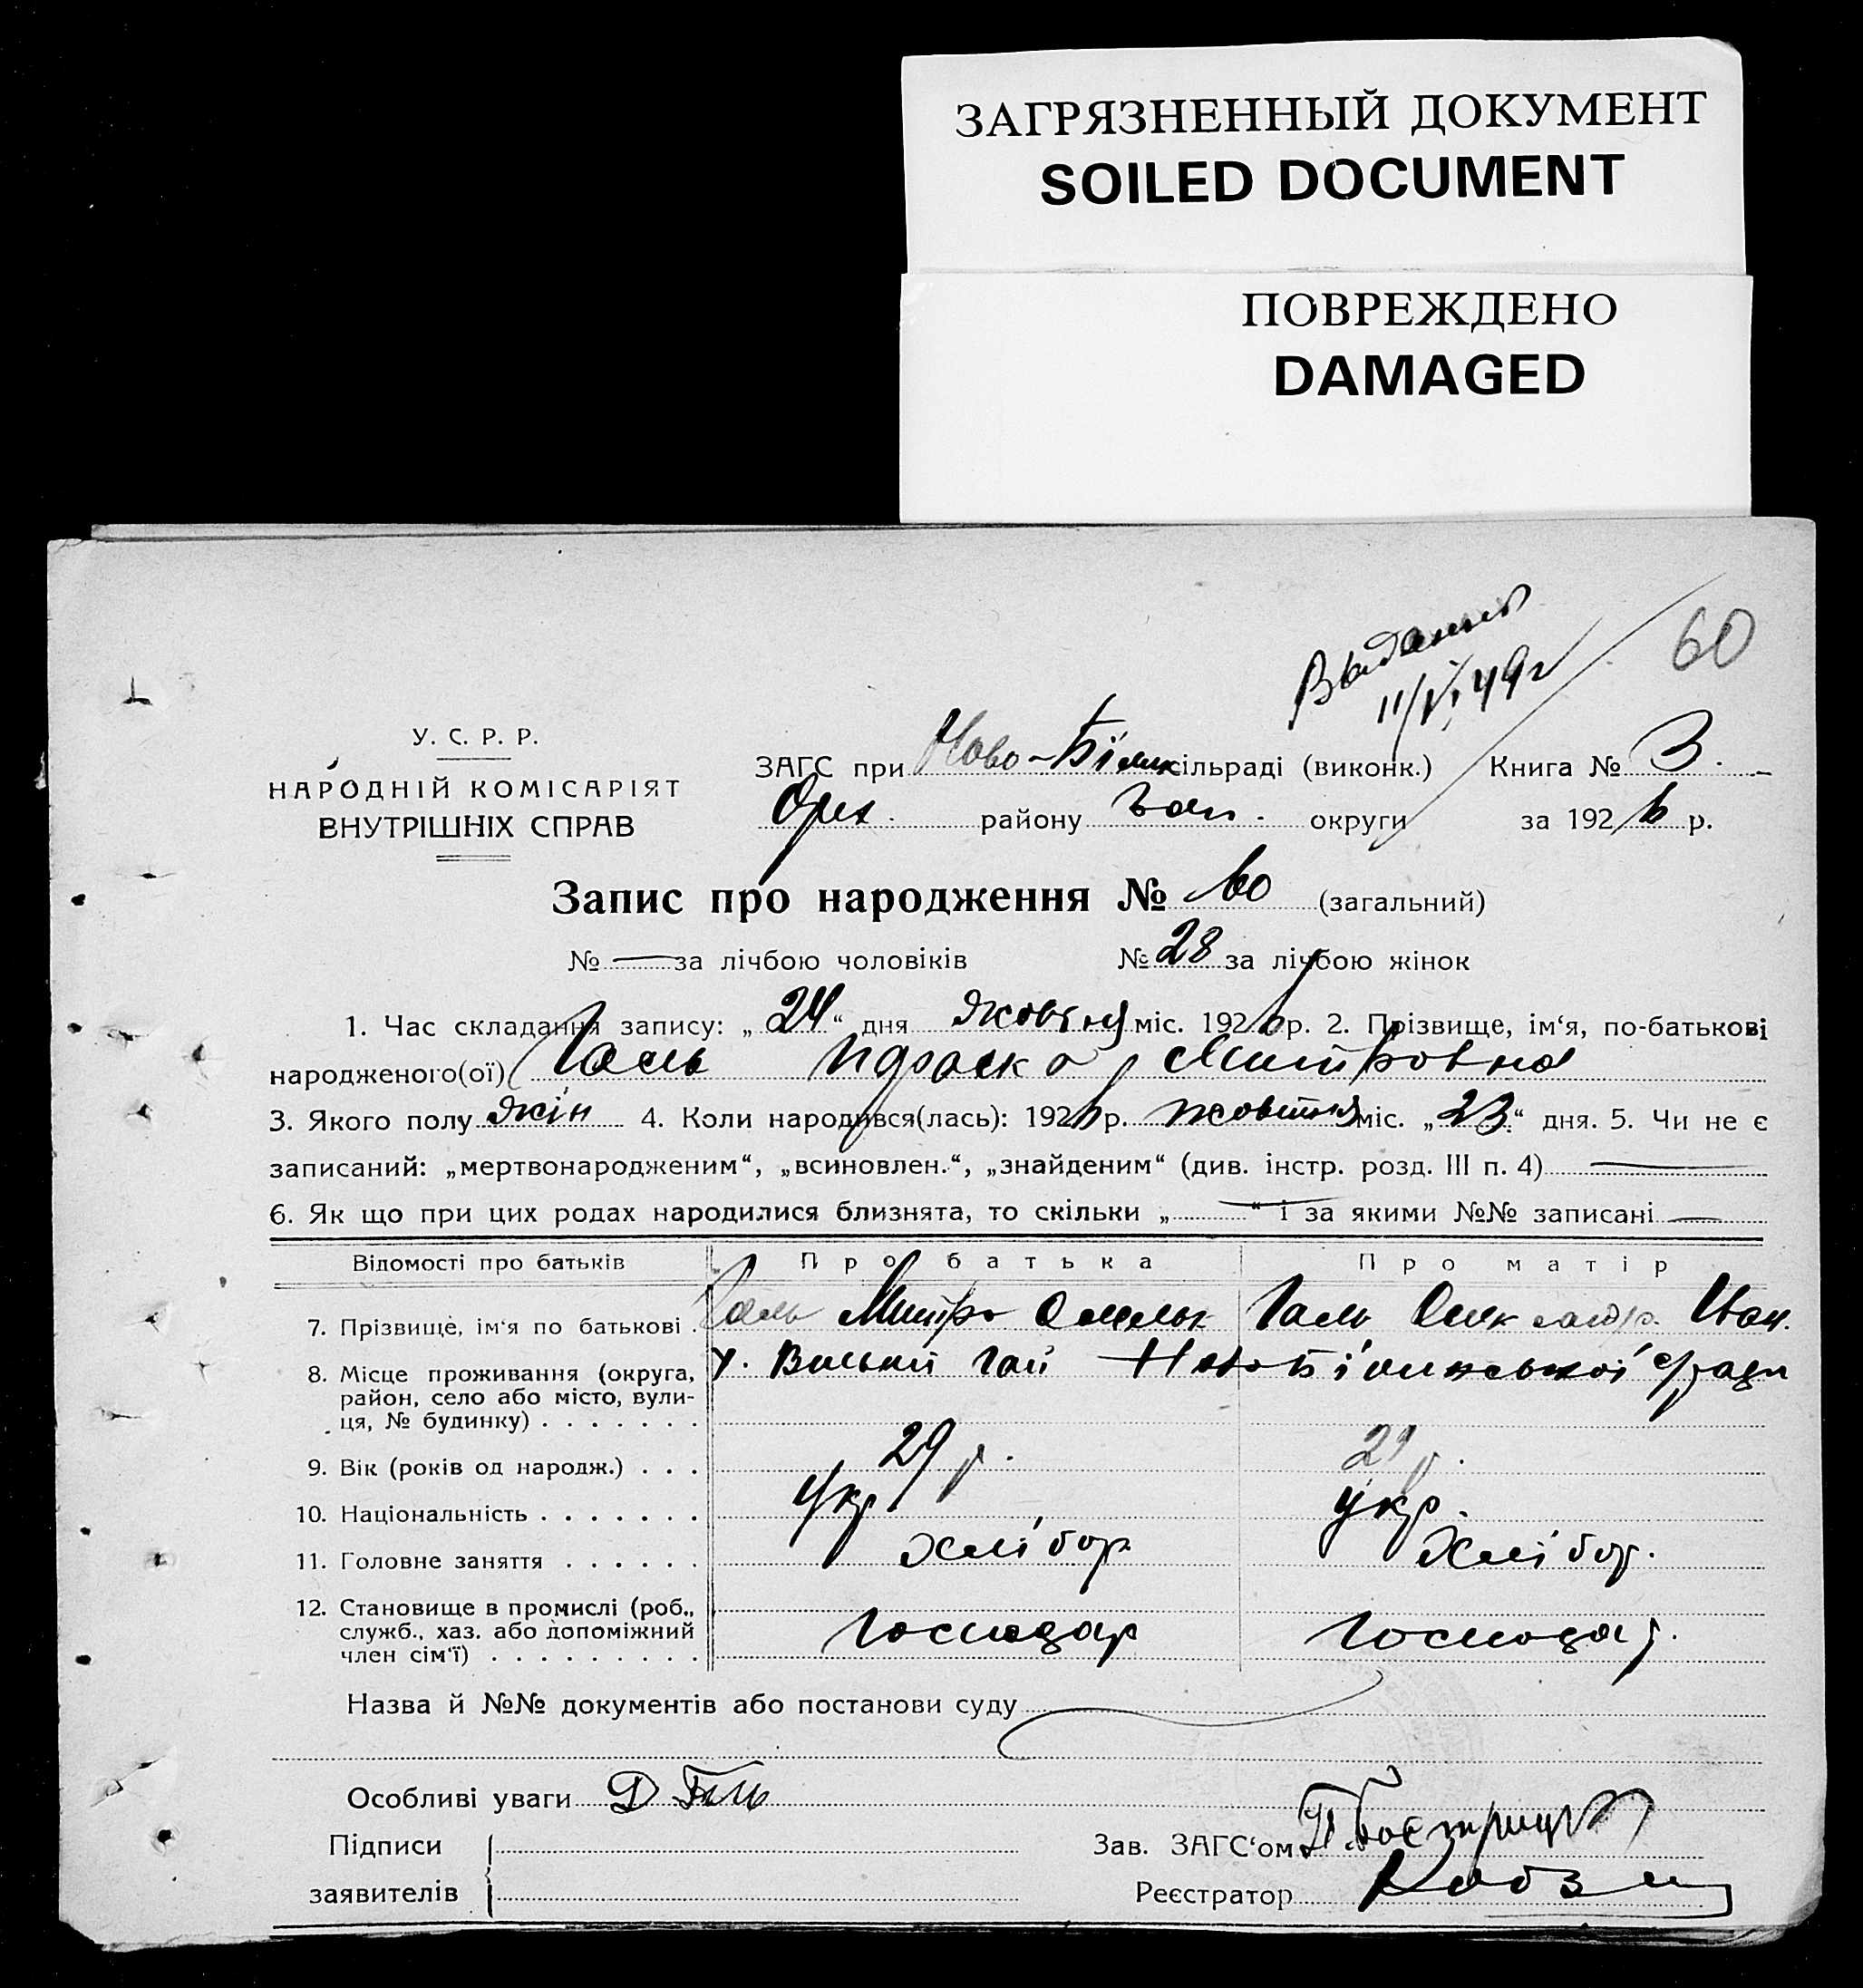 ЗАГРЯЗНЕННЫЙ ДОКУМЕНТ
SOILED DOCUMENT
ПОВРЕЖДЕНО
DAMAGED
60
11/VI 49 г
У. С. Р. Р.
НАРОДНІЙ КОМІСАРІЯТ
ВНУТРІШНІХ СПРАВ
ЗАГС при Ново- сільраді (виконк.) Книга № 3.
Орех. району Зап. округи за 1926 р.
Запис про народження № 60 (загальний)
№ — за лічбою чоловіків № 28 за лічбою жінок
1. Час складання запису: „24“ дня жовтня міс. 1926 р. 2. Прізвище, ім‘я, по-батькові
народженого(ої) Галь Параска Митровна
3. Якого полу жін 4. Коли народився(лась): 1926 р. жовтня міс. „23“ дня. 5. Чи не є
записаний: „мертвонародженим“, „всиновлен.“, „знайденим“ (див. інстр. розд. III п. 4) —
6. Як що при цих родах народилися близнята, то скільки „—“ і за якими №№ записані —
Відомості про батьків Про батька Про матір
7. Прізвище, ім‘я по батькові . Галь Митро Омельк Галь Олександр. Иван.
8. Місце проживання (округа, х. гай ради
район, село або місто, вули-
ця, № будинку) . . . . . . .
9. Вік (років од народж.) . . . 29 р. 29 р.
10. Національність . . . . . . . Укр Укр.
11. Головне заняття . . . . . . Хлібор Хлібор.
12. Становище в промислі (роб.,
служб., хаз. або допоміжний Господар Господар.
член сім‘ї) . . . . . . . . .
Назва й №№ документів або постанови суду
Особливі уваги Д Галь
Підписи Зав. ЗАГС‘ом
заявителів Реєстратор